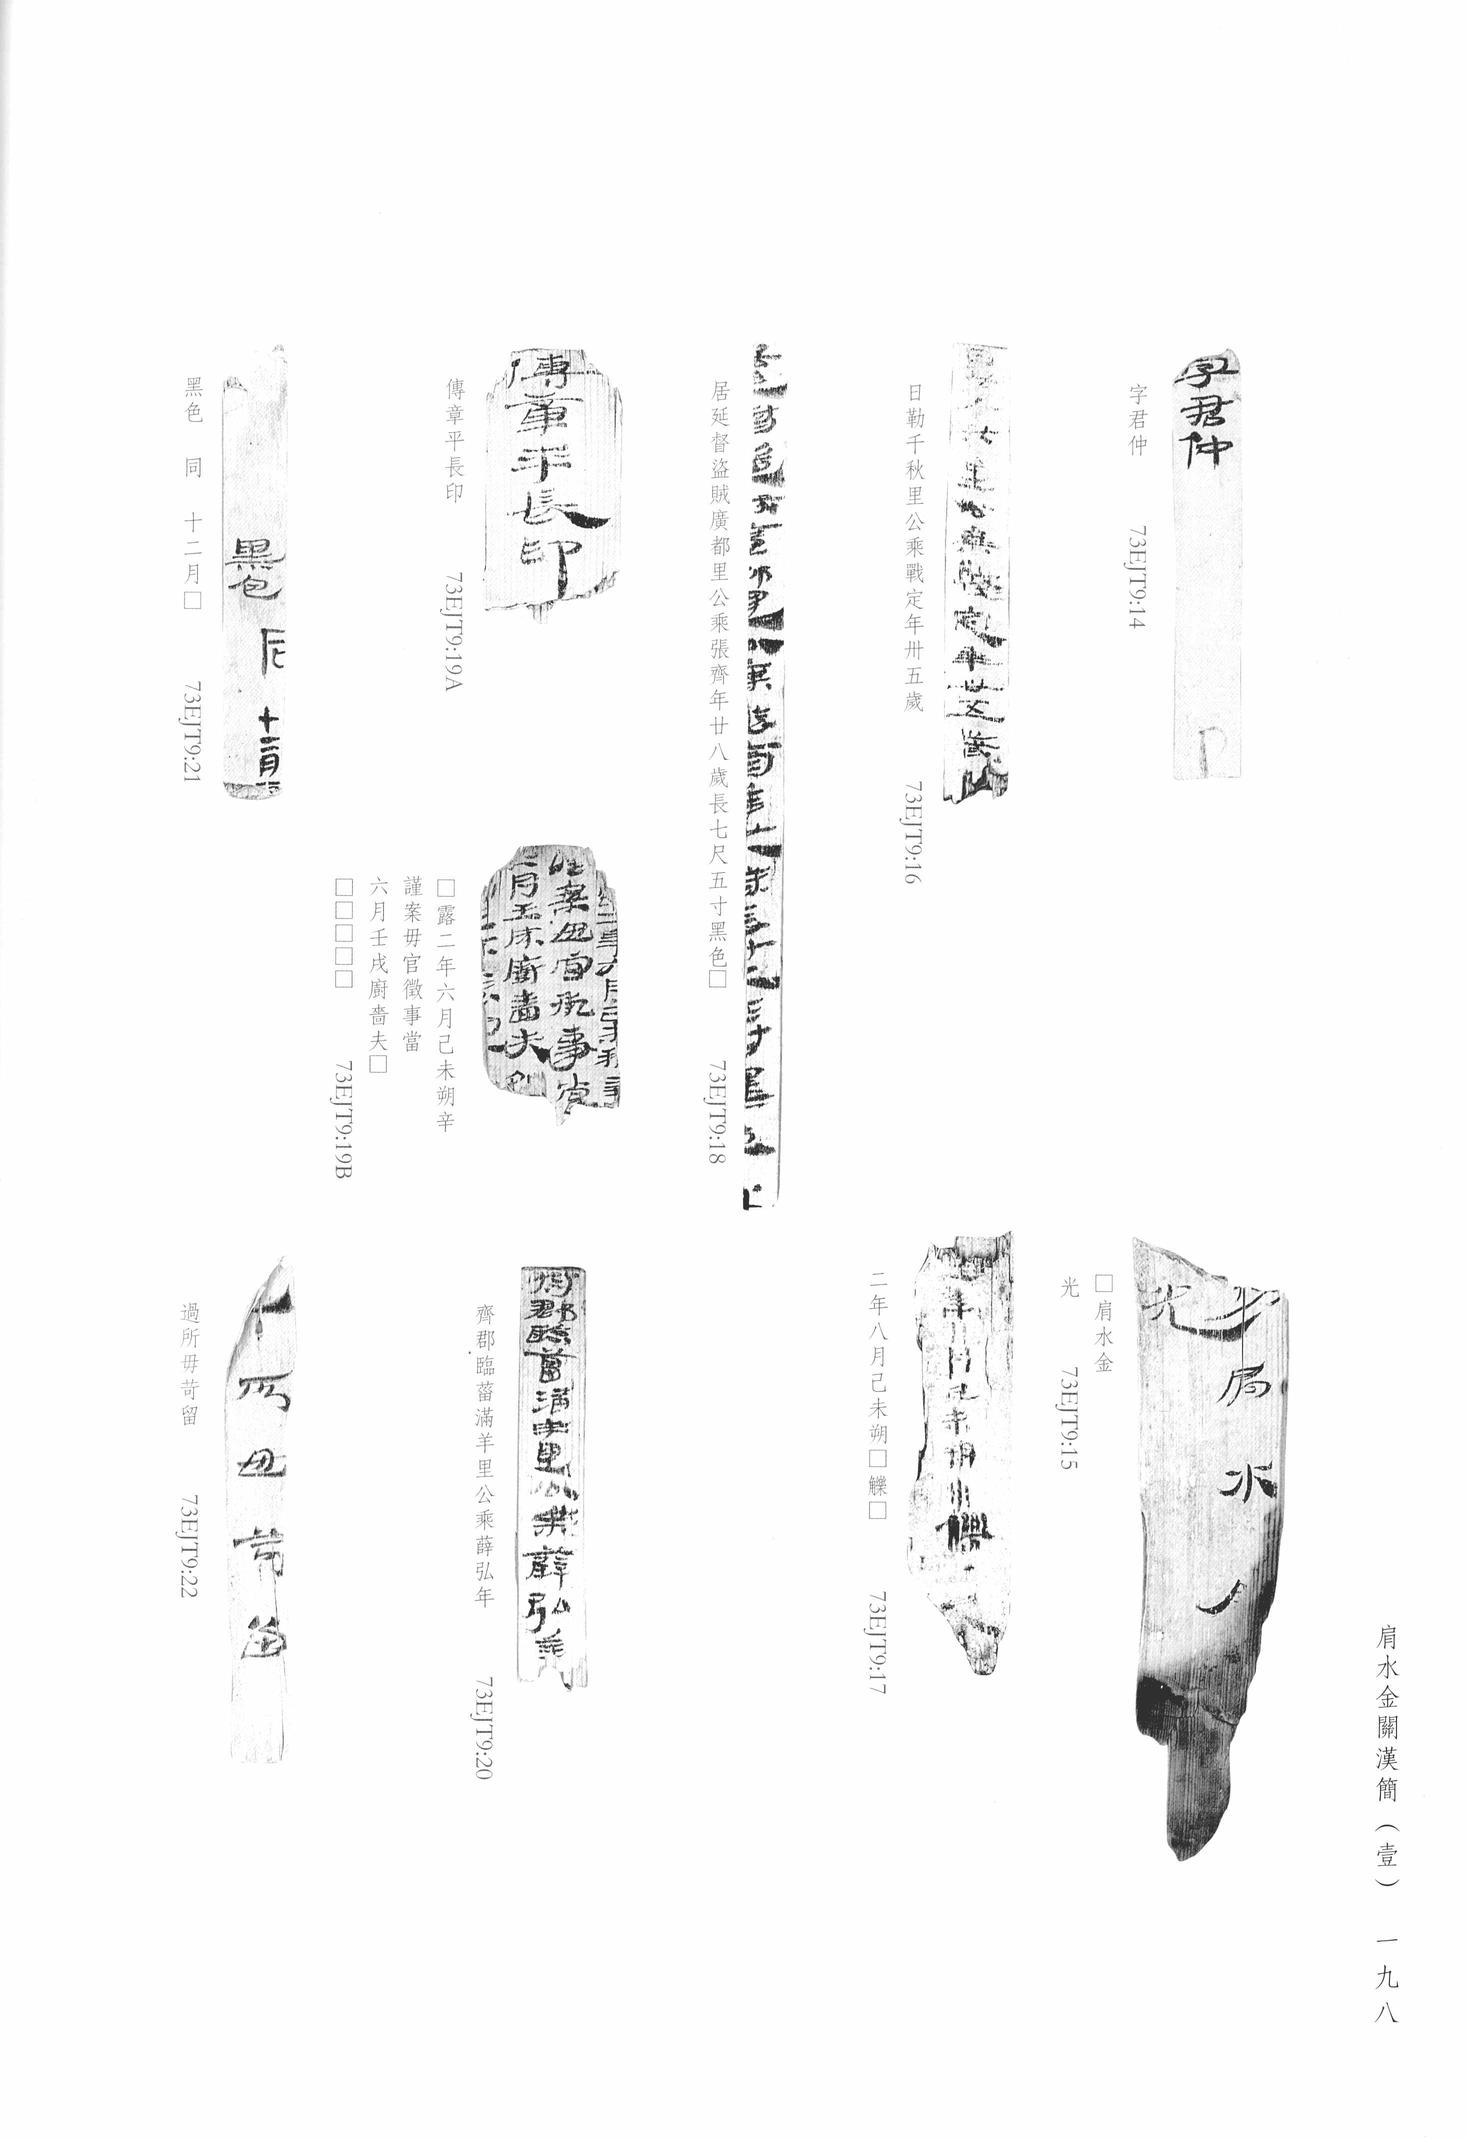 肩水金關漢簡（壹） 一九八
字君仲 73EJT9:14
□肩水金
光 73EJT9:15
日勒千秋里公乘戰定年卅五歲 73EJT9:16
二年八月己未朔□觻□ 73EJT9:17
居延督盜賊廣都里公乘張齊年廿八歲長七尺五寸黑色□ 73EJT9:18
傳章平長印 73EJT9:19A
□露二年六月己未朔辛
謹案毋官徵事當
六月壬戌廚嗇夫□
□□□□□ 73EJT9:19B
齊郡臨菑滿羊里公乘薛弘年 73EJT9:20
黑色 同 十二月□ 73EJT9:21
過所毋苛留 73EJT9:22